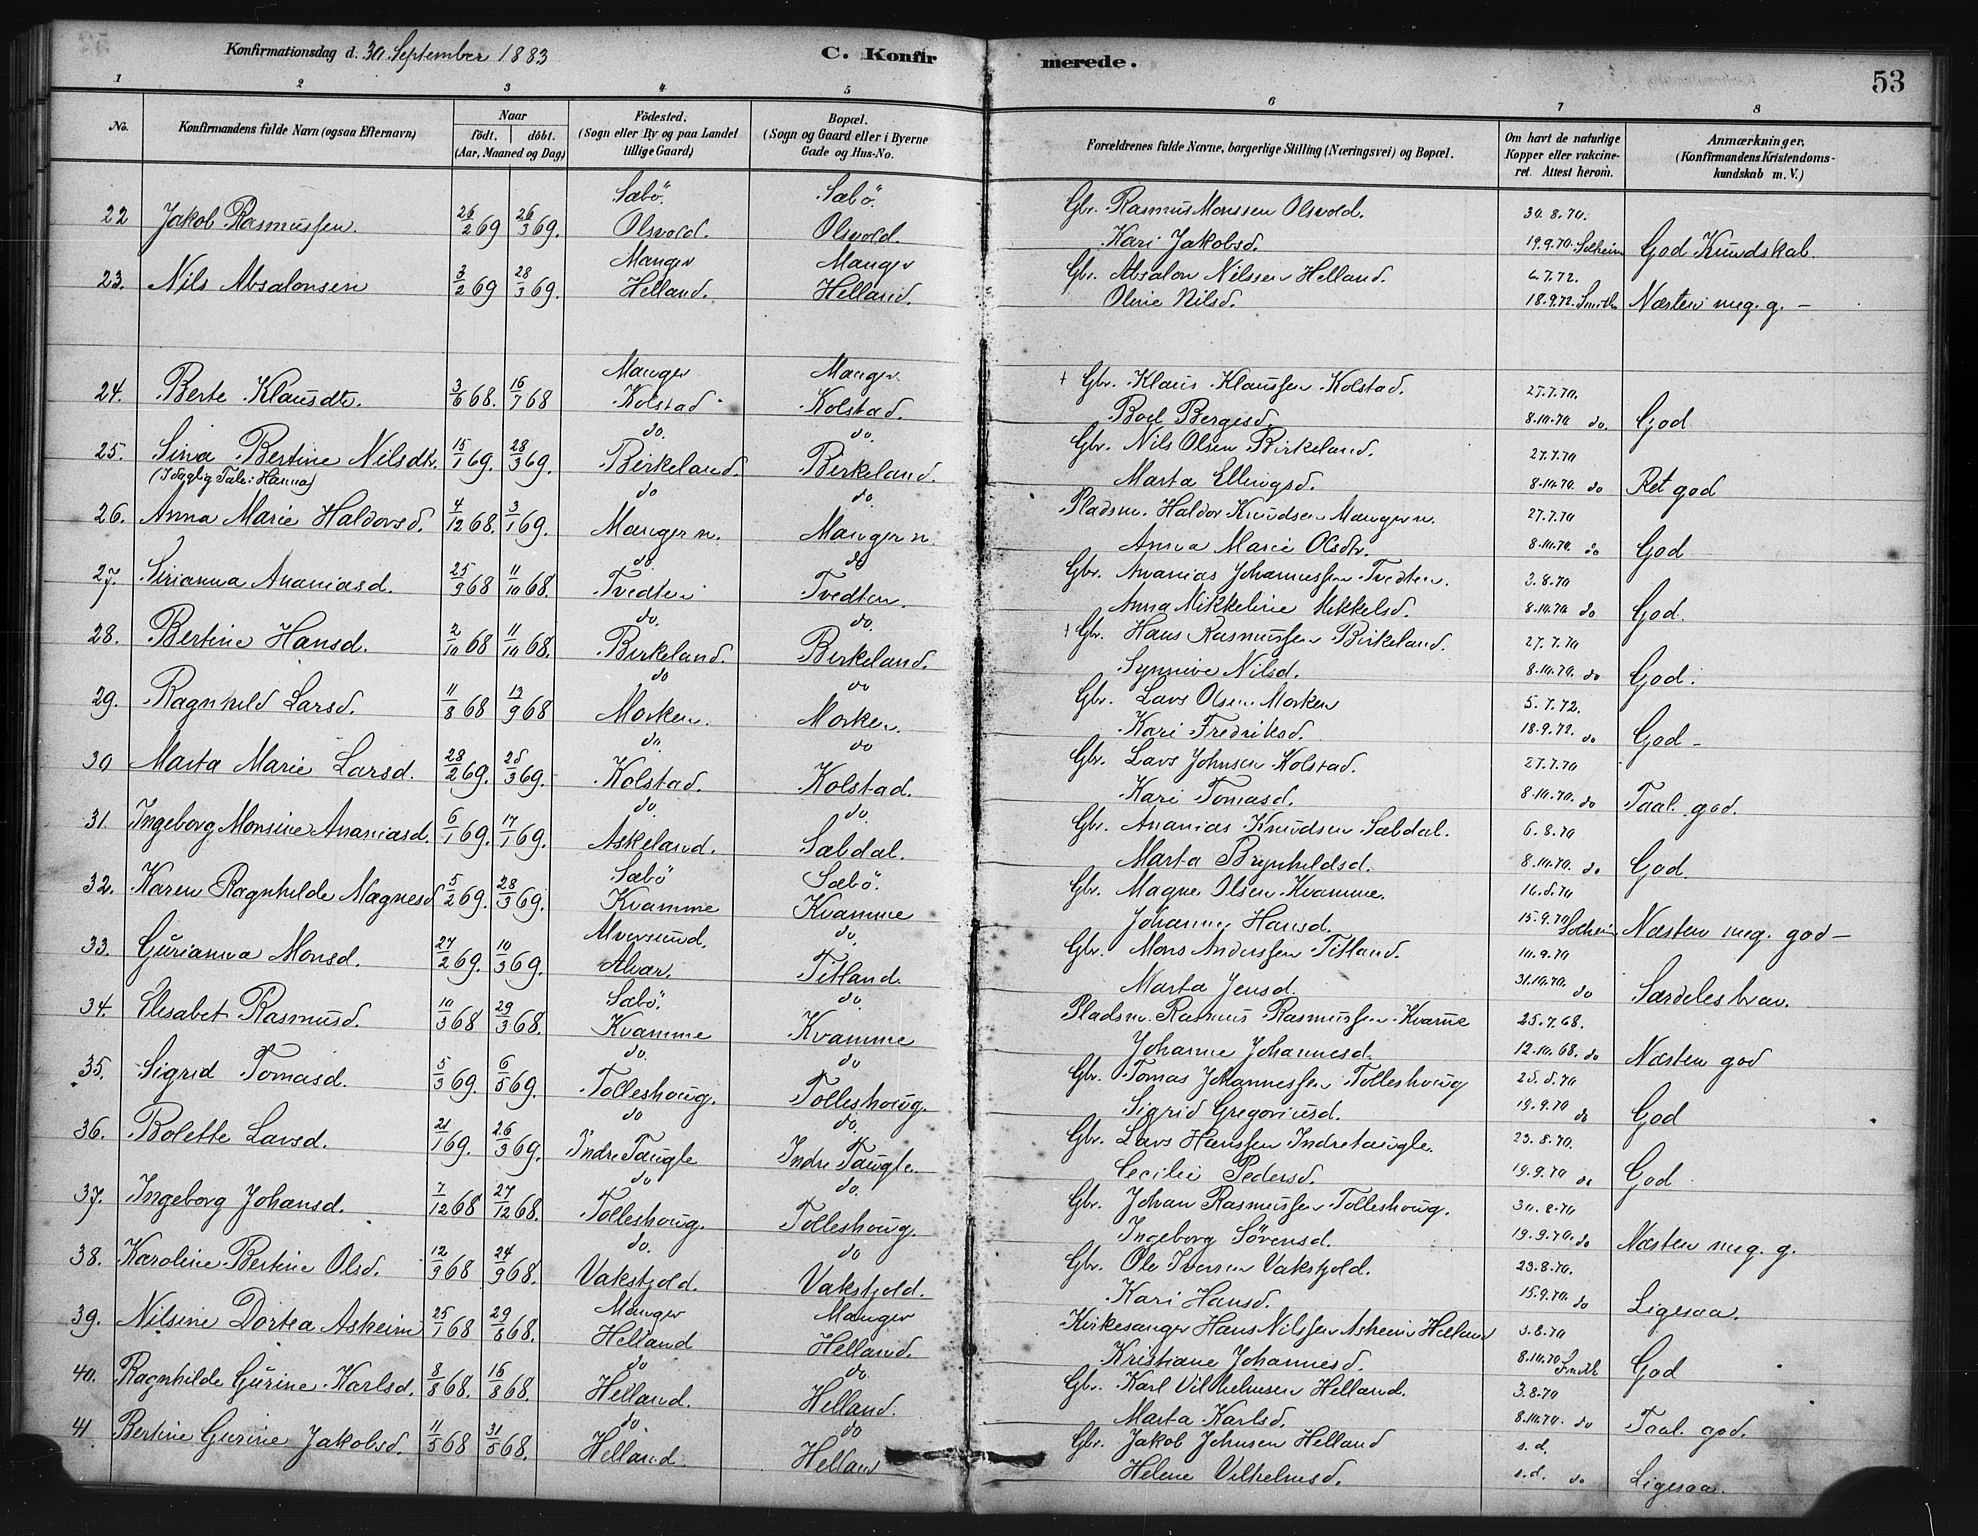 Konfirmationsdag d. 30 September 1883
C. Konfirmerede.
53
1 2 3 4 5 6 7 8
No.
Konfirmandens fulde Navn (ogsaa Efternavn)
Naar
födt. döbt.
(Aar, Maaned og Dag)
Födested.
(Sogn eller By og paa Landet
tillige Gaard)
Bopæl.
(Sogn og Gaard eller i Byerne
Gade og Hus-No.
Forældrenes fulde Navne, borgerlige Stilling (Næringsvei) og Bopæl.
Om havt de naturlige
Kopper eller vakcine-
ret. Attest herom.
Anmærkninger.
(Konfirmandens Kristendoms-
kundskab m. V.)
Sæbö. Sæbö. Gbr. Rasmus Monssen Olsvold. 30.8.70.
22 Jakob Rasmussen. 26/2 69 26/3 69. Olsvold. Olsvold. Kari Jakobsd. 19.9.70. Solheim God Kundskab.
Manger Manger Gbr. Absalon Nilssen Helland. 6.7.72.
23. Nils Absalonsen 3/2 69 28/3 69. Helland. Helland. Oline Nilsd. 18.9.72. Smith Næsten meg. g. -
Manger Manger + Gbr. Klaus Klaussen Kolstad. 27.7.70.
24. Berte Klausdtr. 3/6 68. 16/7 68 Kolstad Kolstad. Boel Bergesd. 8.10.70 do. God
do. do. Gbr. Nils Olsen Birkeland. 27.7.70
25. Sina Bertine Nilsdtr. 15/1 69. 28/3 69. Birkeland. Birkeland. Marta Ellingsd. 8.10.70. do Ret god
(I daglig Tale: Hanna)
do do. Pladsm. Haldor Knudsen Manger n. 27.7.70
26. Anna Marie Haldorsd. 4/12 68. 3/1 69. Manger n. Manger n. Anna Marie Olsdtr. 8.10.70. do God
do. do Gbr. Ananias Johannessen Tvedten. 3.8.70
27. Sirianna Ananiasd. 25/9 68 11/10 68. Tvedten Tvedten. Anna Mikkeline Mikkelsd. 8.10.70 do God.
do. do. + Gbr. Hans Rasmussen Birkeland. 27.7.70
28. Bertine Hansd. 2/10 68 11/10 68. Birkeland. Birkeland. Synnive Nilsd. 8.10.70. do God.
do do Gbr. Lars Olsen Morken 5.7.72.
29. Ragnhild Larsd. 11/8 68 13/9 68 Morken. Morken. Kari Fredriksd. 18.9.72. do God -
do. do Gbr. Lars Johnsen Kolstad. 27.7.70
30 Marta Marie Larsd. 28/2 69. 28/3 69. Kolstad. Kolstad. Kari Tomasd. 8.10.70. do Taal. god.
do. do. Gbr. Ananias Knudsen Sæbdal. 6.8.70
31. Ingeborg Monsine Ananiasd. 6/1 69. 17/1 69. Askeland. Sæbdal. Marta Brynhildsd. 8.10.70. do God
Sæbö Sæbö. Gbr. Magne Olsen Kvamme. 16.8.70
32. Karen Ragnhilde Magnesd 5/2 69. 28/3 69. Kvamme Kvamme Johanne Hansd. 15.9.70 Solheim Næsten meg. god -
Alversund. do. Gbr. Mons Anderssen Titland. 10.9.70
33. Gurianna Monsd. 27/2 69. 10/3 69. Alvær. Titland. Marta Jensd. 31.10.70. do Særdeles brav.
Sæbö. do. Pladsm. Rasmus Rasmussen Kvamme 25.7.68.
34. Elisabet Rasmusd. 10/3 68 29/3 68. Kvamme Kvamme Johanne Johannesd. 12.10.68. do Næsten god
do. do Gbr. Tomas Johannessen Tolleshoug 25.8.70
35. Sigrid Tomasd. 5/3 69. 6/5 69. Tolleshoug. Tolleshoug. Sigrid Gregoriusd. 19.9.70 do God
do do. Gbr. Lars Hanssen Indretaugle. 23.8.70.
36. Bolette Larsd. 21/1 69. 26/3 69. Indre Taugle Indre Taugle. Cecilie Pedersd. 19.9.70 do God
do do. Gbr. Johan Rasmussen Tolleshoug. 30.8.70
37. Ingeborg Johansd. 7/12 68 27/12 68. Tolleshoug. Tolleshoug. Ingeborg Sörensd. 19.9.70. do Næsten meg. g.
do. do Gbr. Ole Iversen Vakstjold. 23.8.70.
38. Karoline Bertine Olsd. 12/9 68 24/9 68. Vakstjold. Vakstjold. Kari Hansd. 15.9.70. do Ligesaa.
Manger Manger Kirkesanger Hans Nilssen Askeim Helland 3.8.70
39. Nilsine Dortea Askeim 25/1 68 29/8 68. Helland Helland. Kristiane Johannesd. 8.10.70 Smith God
do do. Gbr. Karl Vilhelmsen Helland. 3.8.70
40. Ragnhilde Gurine Karlsd. 8/8 68. 16/8 68. Helland. Helland. Marta Karlsd. 8.10.70. do Taal. god.
do do Gbr. Jakob Johnsen Helland s.d.
41 Bertine Gurine Jakobsd. 11/5 68 31/5 68. Helland. Helland Helene Vilhelmsd. s.d. do Ligesaa.